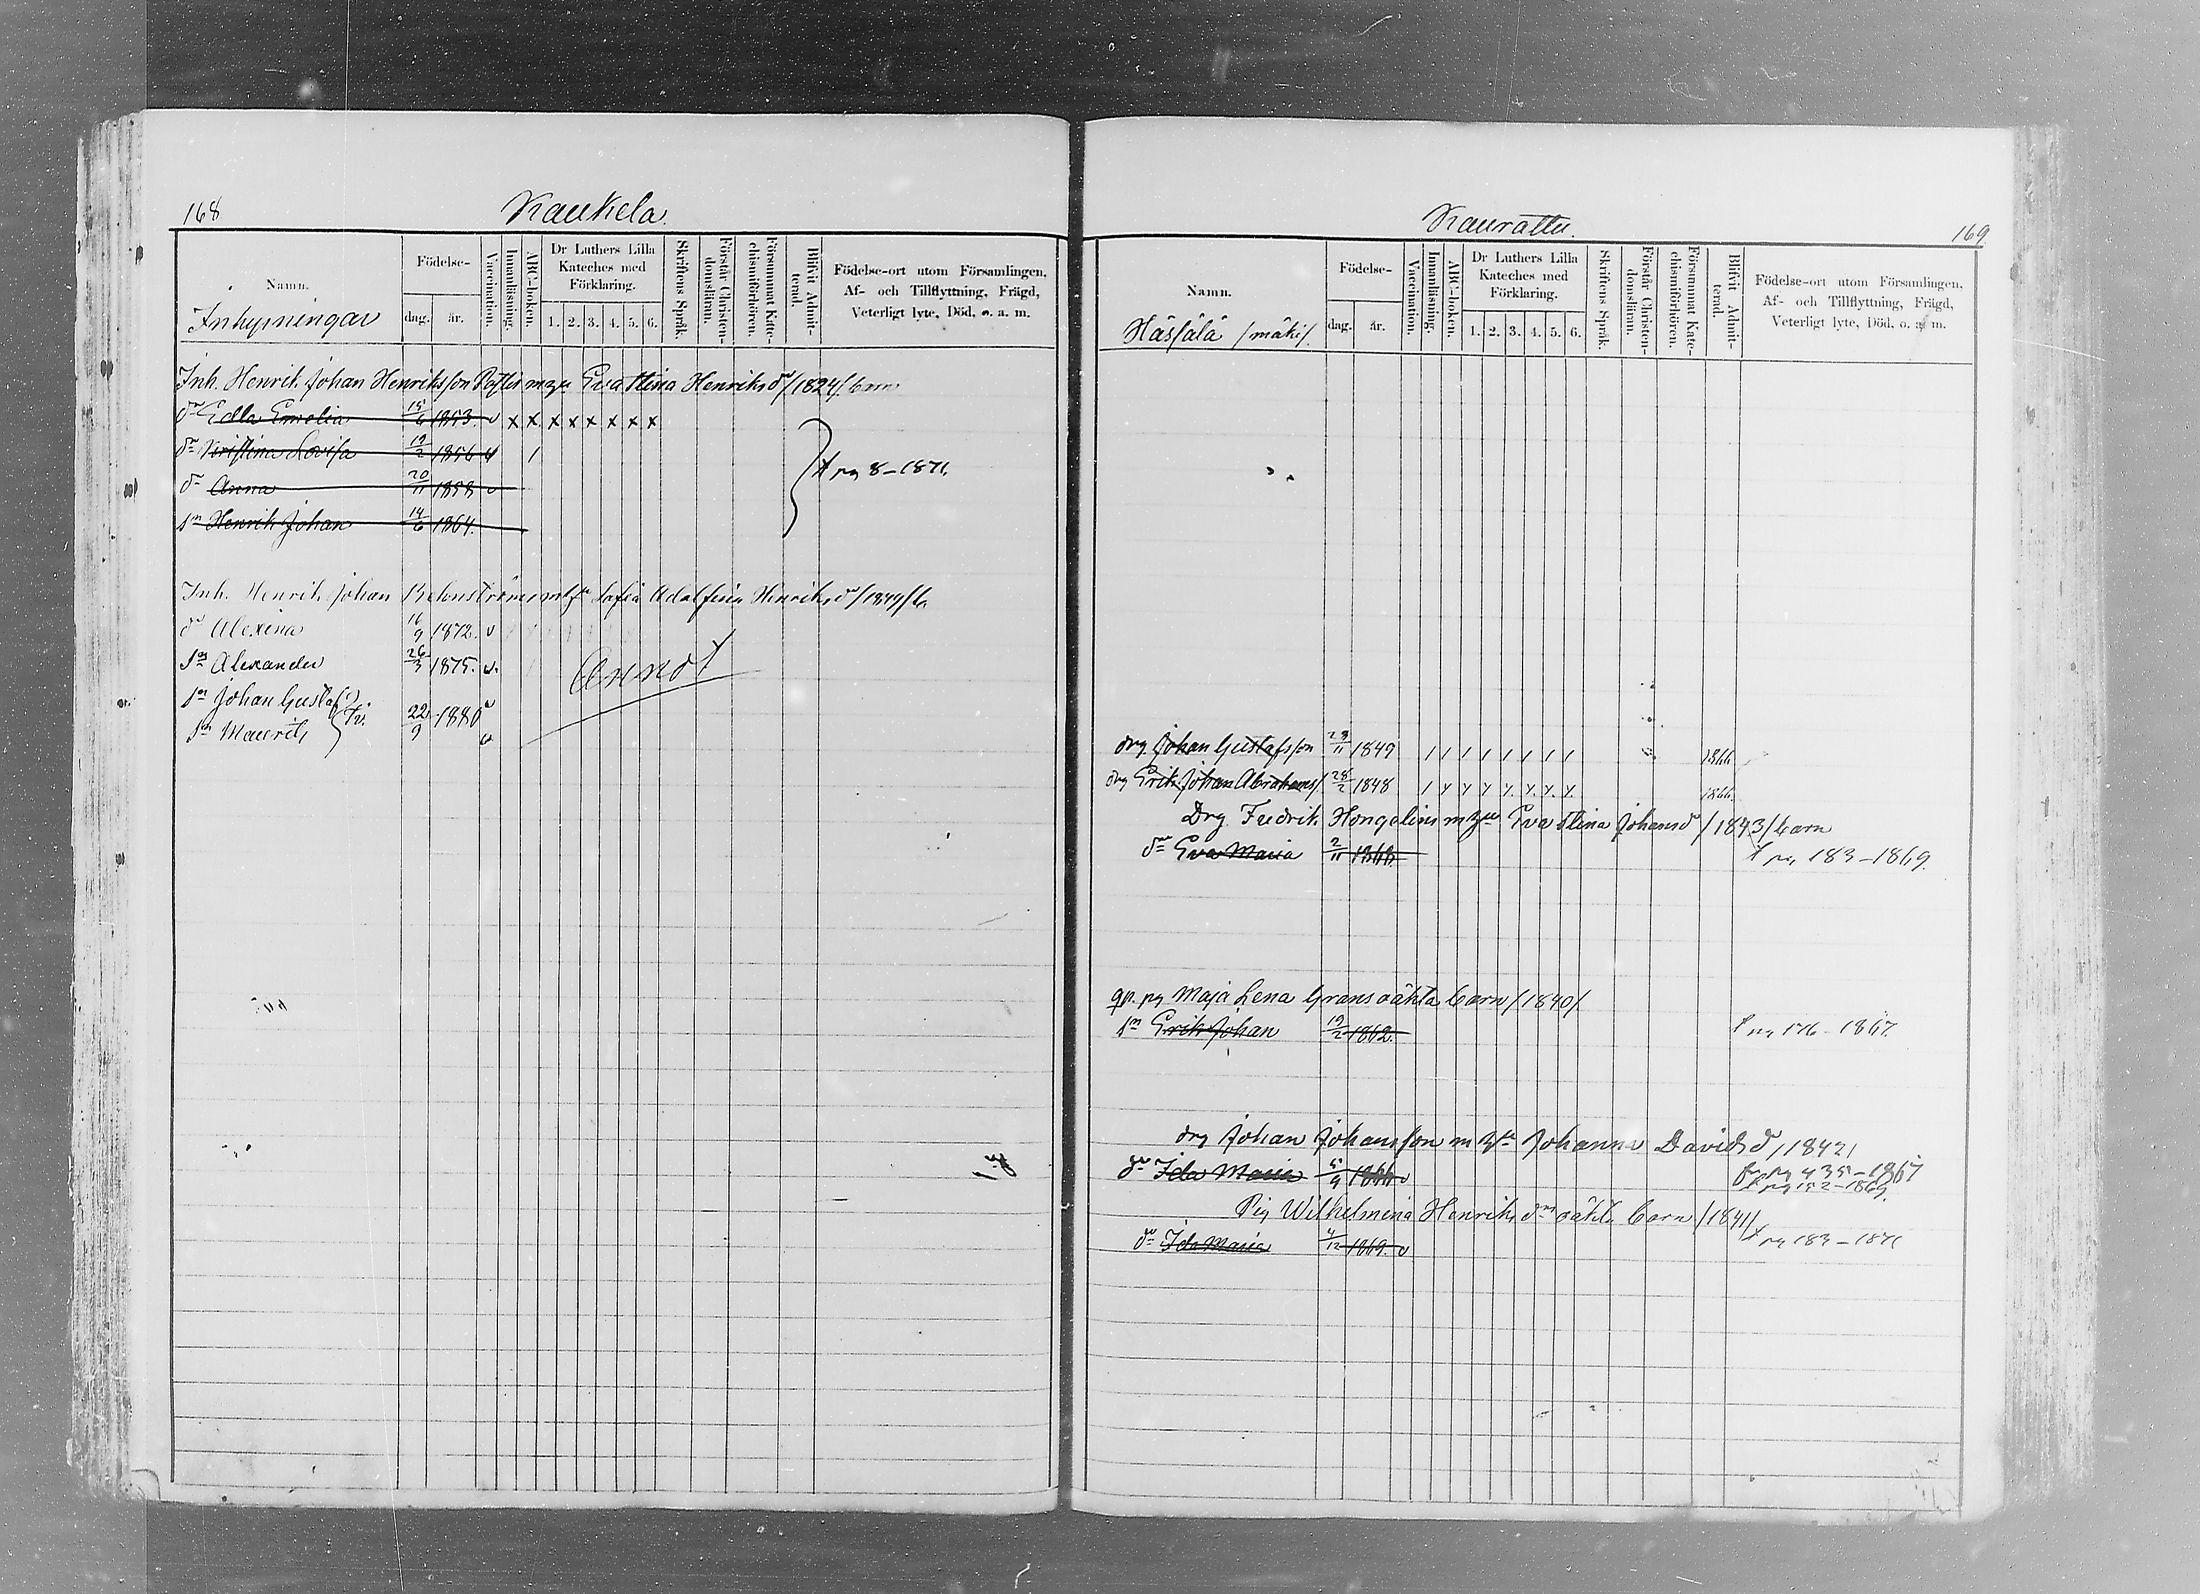 168
Kaukela.
Namn.
Inhysningar
Födelse-
dag. år.
Vaccination.
Innanläsning.
ABC-boken.
Dr Luthers Lilla
Kateches med
Förklaring.
1. 2. 3. 4. 5. 6.
Skriftens Språk.
Förstår Christen-
domsläran.
Försummat Kate-
chismiförhören.
Blifvit Admit-
terad.
Födelse-ort utom Församlingen,
Af- och Tillflyttning, Frägd,
Veterligt lyte, Död, o. a. m.
Inh. Henrik Johan Henriksson m hu Eva Stina Henriksdr /1824/ barn
dr Edla Emelia 15/6 1853. v x x x x x x x x
dr Kristina Lovisa 19/2 1856 v 1
dr Anna 20/11 1858 v
t pg 8-1871.
sn Henrik Johan 14/6 1864.
Inh. Henrik Johan m hu Sofia Adolfina Henriksdr /1849/ b.
dr Alexina 16/9 1872. v
sn Alexander 26/3 1875. v.
Annot
sn Johan Gustaf v
sn Maurits Tv. 22/9 1880 v
Kaurattu.
169
Namn.
Hässälä /mäki/.
Födelse-
dag. år.
Vaccination.
Innanläsning.
ABC-boken.
Dr Luthers Lilla
Kateches med
Förklaring.
1. 2. 3. 4. 5. 6.
Skriftens Språk.
Förstår Christen-
domsläran.
Försummat Kate-
chismiförhören.
Blifvit Admit-
terad.
Födelse-ort utom Församlingen,
Af- och Tillflyttning, Frägd,
Veterligt lyte, Död, o. a. m.
drg Johan Gustafsson 29/11 1849 1 1 1 1 1 1 1 1 1866
drg Erik Johan Abrahams/ 28/2 1848 1866.
Drg Fredrik Hongelins m hu Eva Stina Johansdr /1843/ barn
dr Eva Maria 2/11 1868. t pg 183-1869.
pg Maja Lena Grans oäkta barn /1840/
sn Erik Johan 19/2 1862. t pg 176-1867.
drg Johan Johansson m hu Johanna Davidsdr /1842/
dr Ida Maria 5/9 1866 v fr pg 435-1867
t pg 182-1869.
Pig Wilhelmina Henriksdrs oäkta barn /1841/
dr Ida Maria 1/12 1869. v t pg 183-1871